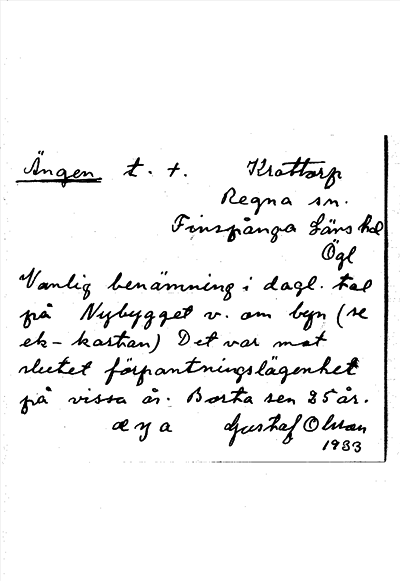 Ängen t. t. Krattorp
Regna sn.
Finspånga Läns hd
Ögl
Vanlig benämning i dagl. tal
på Nybygget v. om byn (se
ek-kartan) Det var mot
slutet förpantningslägenhet
på vissa år. Borta sen 35 år.
Gustaf Olsson
1933